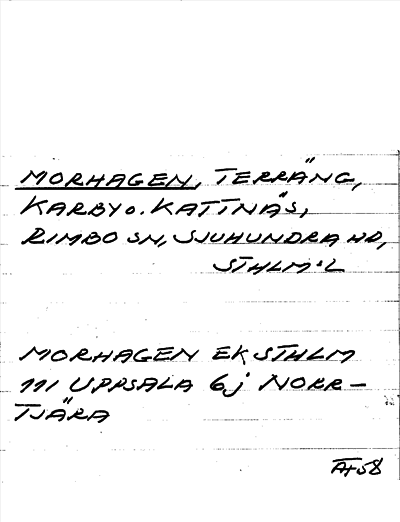 MORHAGEN, TERRÄNG,
KARBY o. KATTNÄS,
RIMBO SN, SJUHUNDRA HD,
STHLM:L
MORHAGEN EK STHLM
111 UPPSALA 6j NORR-
TJÄRA
ÄH58